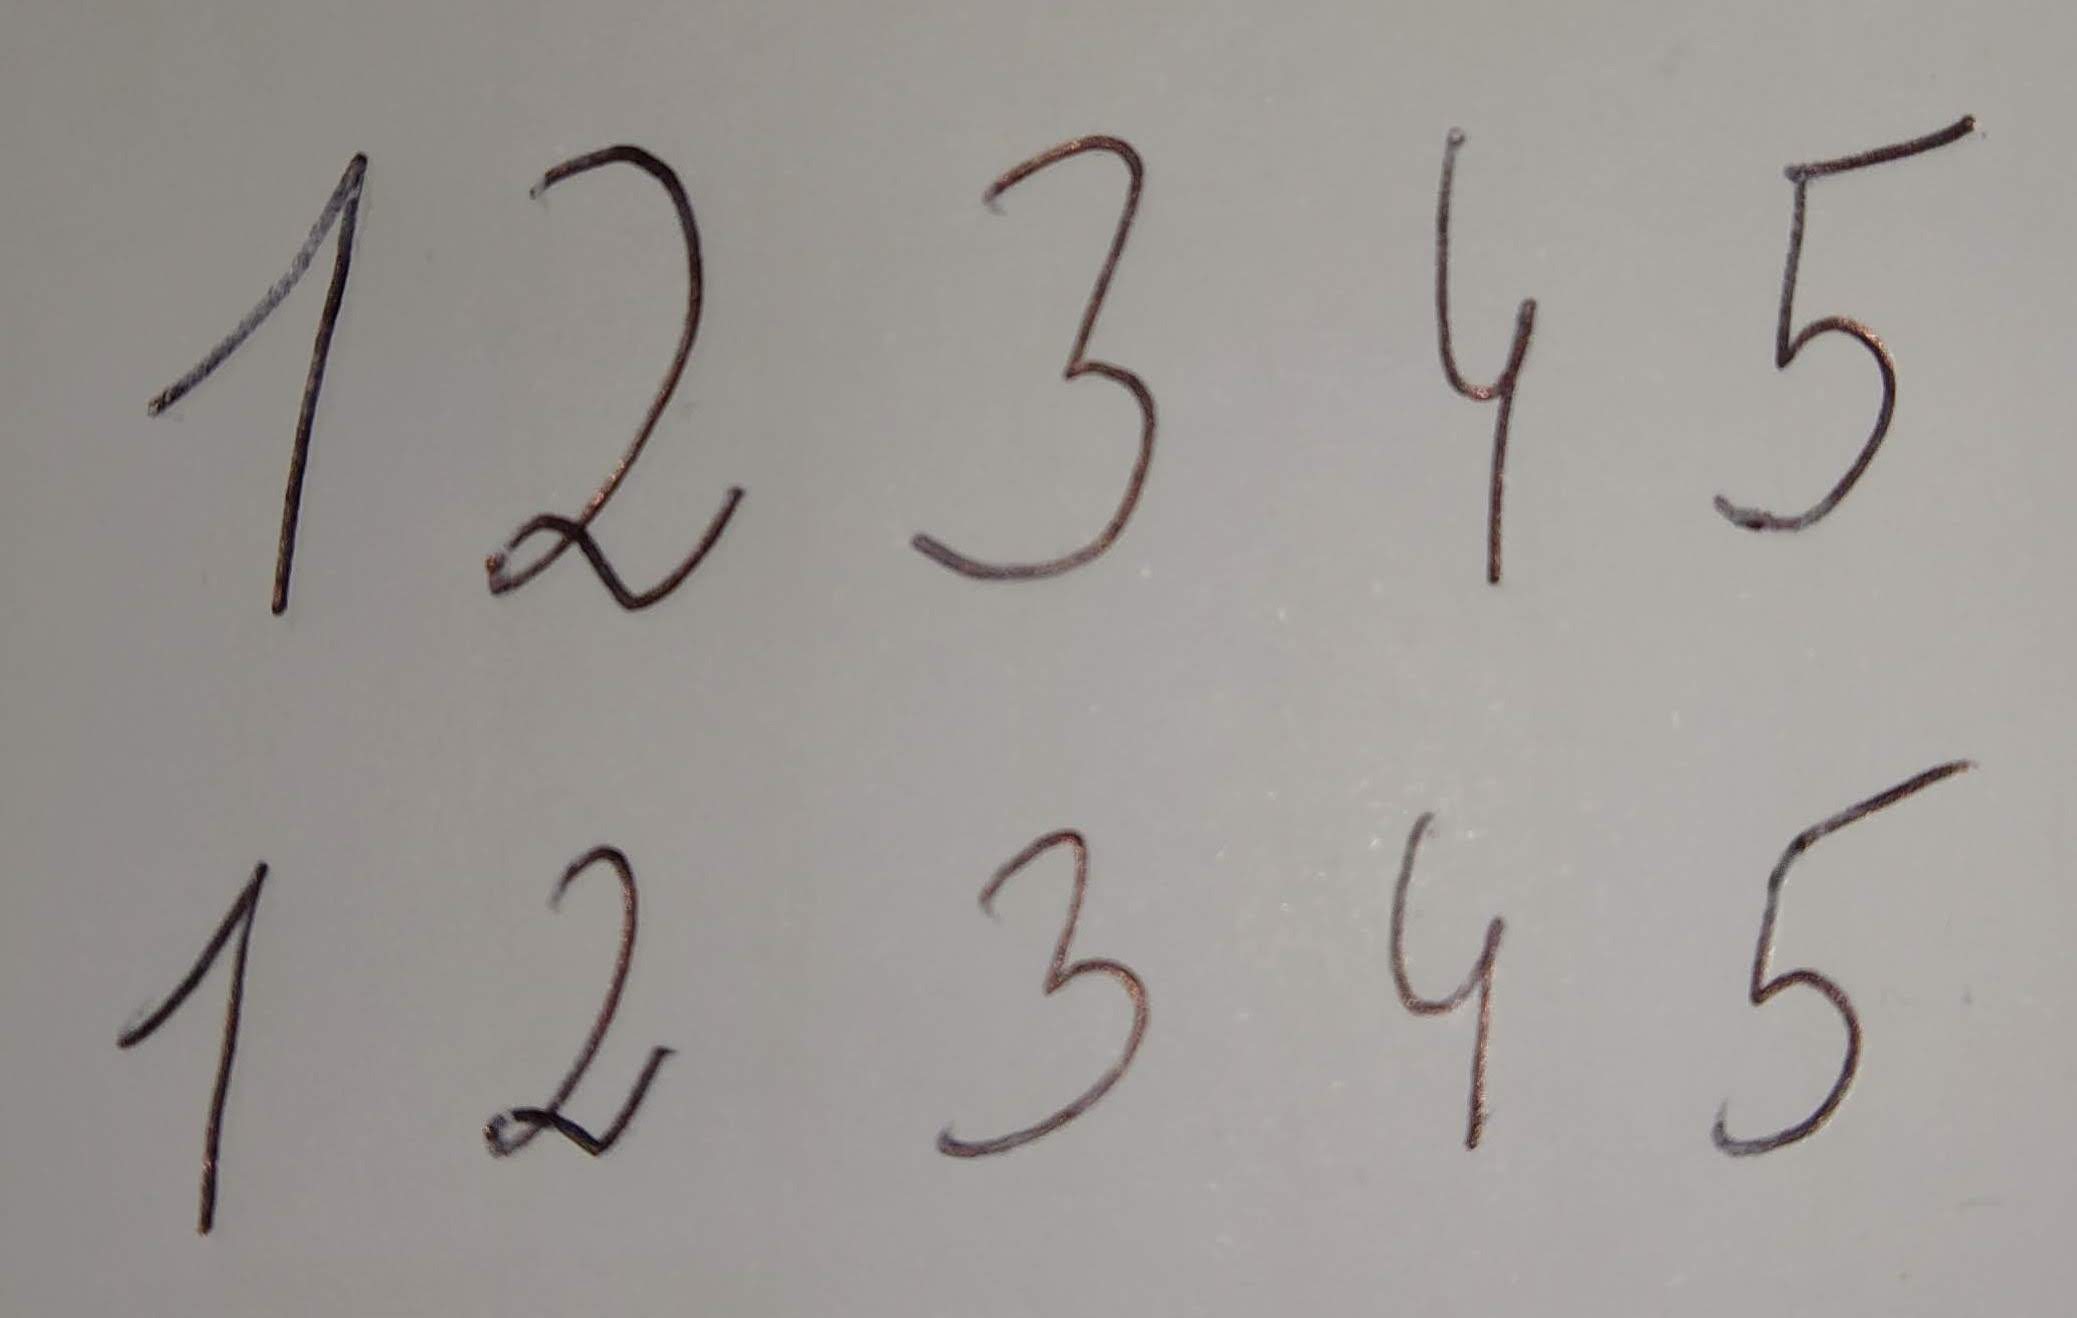 1 2 3 4 5
1 2 3 4 5